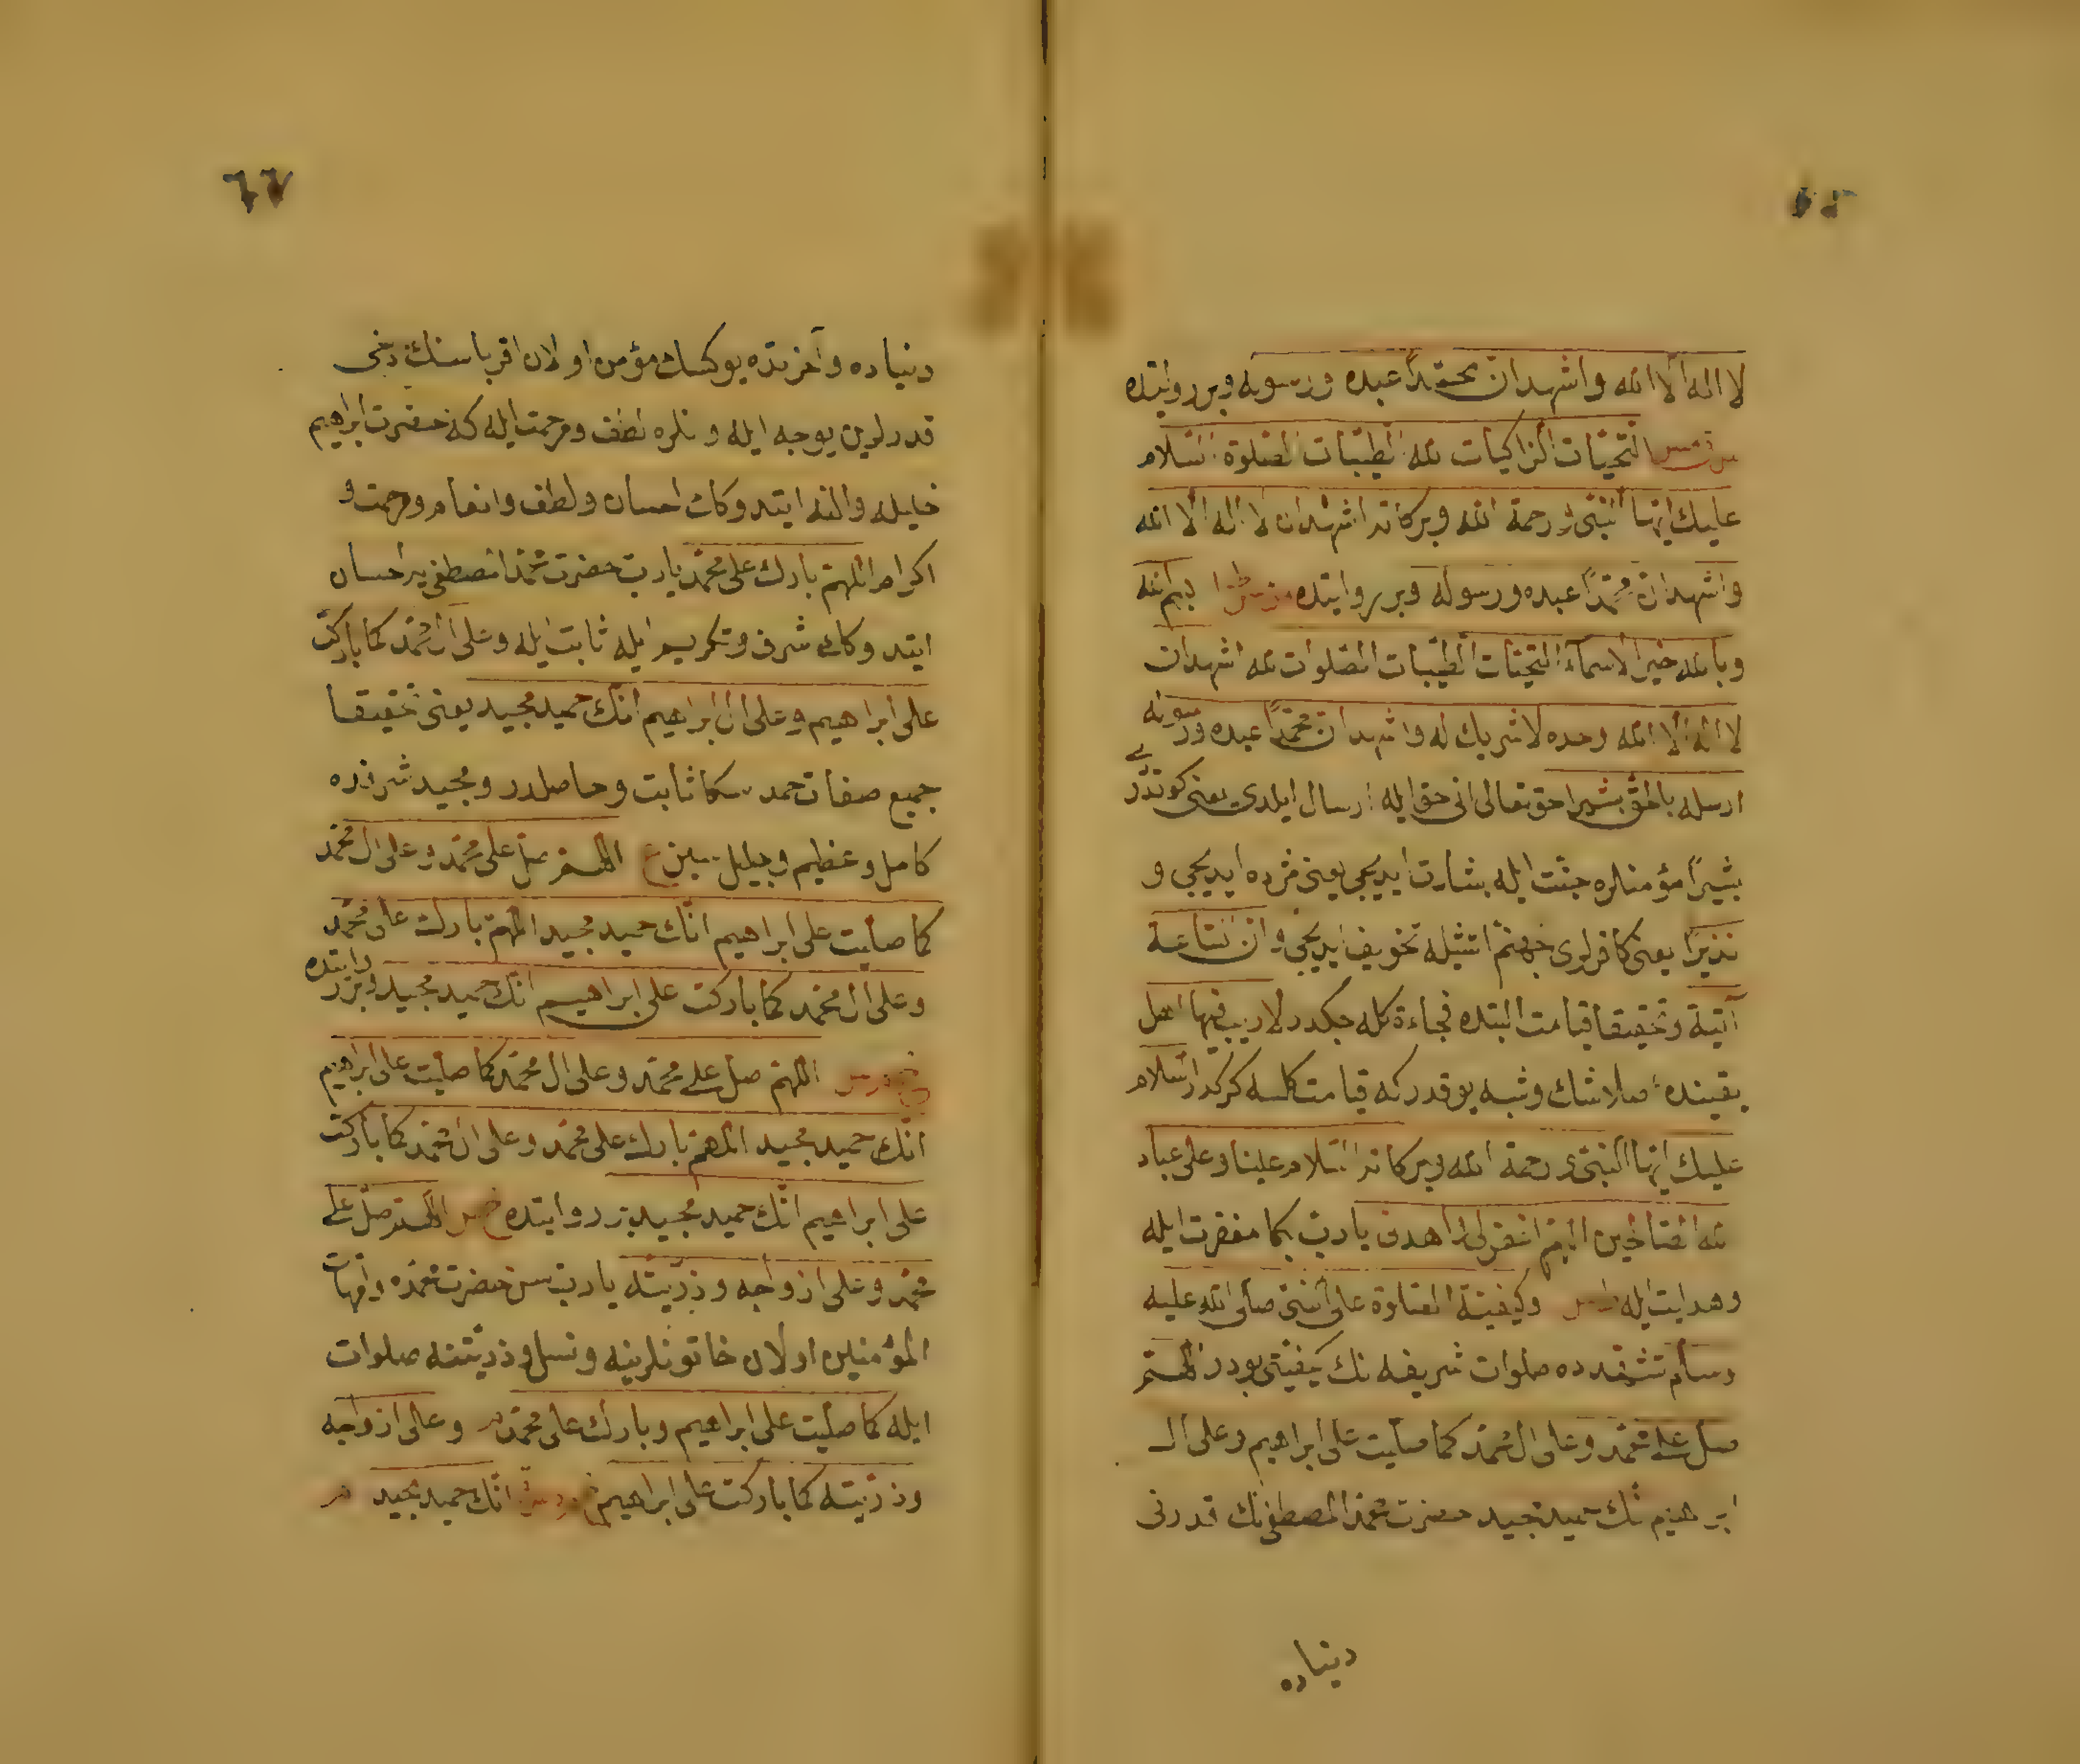 لا اله الا الله واشهد ان محمّدًا عبده ورسوله وبر روايتده
التحيّات الزاكيات لله الطيّبات الصّلوة السّلام
عليك ايّها النّبىّ ورحمة الله وبركاته اشهد ان لا اله الا الله
واشهد ان محمّدًا عبده ورسوله وبر روايتده بسم الله
وبالله خير الاسمآء التحيّات الطيّبات الصّلوات لله اشهد ان
لا اله الا الله وحده لا شريك له واشهد ان محمّدًا عبده ورسوله
ارسله بالحقّ بشيرا حق تعالى انى حق ايله ارسال ايلدى يعنى كوندردى
بشيرًا مؤمنلره جنّت ايله بشارت ايديجى يعنى مژده ايديجى و
نذيرًا يعنى كافرلرى جهنّم اتشيله تخويف ايديجى وان السّاعة
آتية وتحقيقا قيامت البتده فجاءة كله جكدر لا ريب فيها اصل
يقينده اصلا شك وشبه يوقدركه قيامت كلسه كركدر السّلام
عليك ايّها النّبىّ ورحمة الله وبركاته السّلام علينا وعلى عباد
لله الصّالحين اللهمّ اغفرلى واهدنى يا ربّ بكا مغفرت ايله
وهدايت ايله وكيفيّة الصّلوة على النّبى صلّى الله عليه
وسلّم تشهّدده صلوات شريفه نك كيفيّتى بودر اللهمّ
صلّ على محمّد وعلى ال محمّد كما صلّيت على ابراهيم وعلى ال
ابراهيم انّك حميد مجيد حضرت محمّد المصطفى نك قدرنى
دنياده
٦٦
دنياده وآخرتده يوكسك مؤمن اولان اقرباسنك دخى
قدرلرين يوجه ايله ونلره لطف ومرحمت ايله كه حضرت ابراهيم
خليله والنه ايتدوكك احسان ولطف وانعام ومرحمت و
اكرام اللهمّ بارك على محمّد يا ربّ حضرت محمّد المصطفى يه احسان
ايتدوكك شرف وتكريم ايله ثابت ايله وعلى ال محمّد كما باركت
على ابراهيم وعلى ال ابراهيم انّك حميد مجيد يعنى تحقيقا
جميع صفات حمد سكا ثابت وحاصلدر ومجيد شرفده
كامل وعظيم وجليل سين ع اللهمّ صلّ على محمّد وعلى ال محمّد
كما صلّيت على ابراهيم انّك حميد مجيد اللهمّ بارك على محمّد
وعلى ال محمّد كما باركت على ابراهيم انّك حميد مجيد وبر روايتده
اللهمّ صلّ على محمّد وعلى ال محمّد كما صلّيت على ابراهيم
انّك حميد مجيد اللهمّ بارك على محمّد وعلى ال محمّد كما باركت
على ابراهيم انّك حميد مجيد بر روايتده اللهمّ صلّ على
محمّد وعلى ازواجه وذرّيّته يا ربّ سن حضرت محمّده وامّهات
المؤمنين اولان خاتونلرينه ونسل وذرّيّتنه صلوات
ايله كما صلّيت على ابراهيم وبارك على محمّد وعلى ازواجه
وذرّيّته كما باركت على ابراهيم انّك حميد مجيد